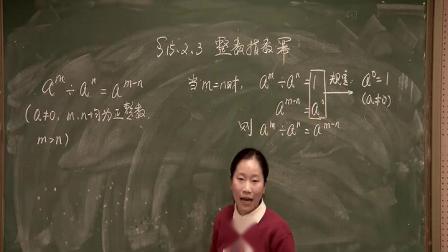 §15.2.3 整数指数幂
a^m÷a^n=a^{m-n}
(a≠0, m、n均为正整数,
m>n)
当m=n时, a^m÷a^n=1
a^{m-n}=a^0
则 a^m÷a^n=a^{m-n}
规定: a^0=1
(a≠0)